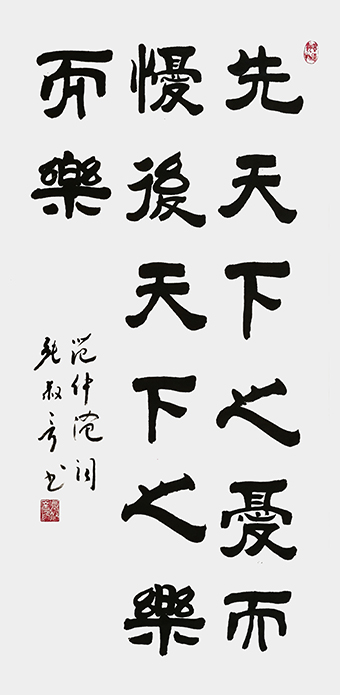 先天下之憂而
懮後天下之樂
而樂
范仲淹詞
叔書